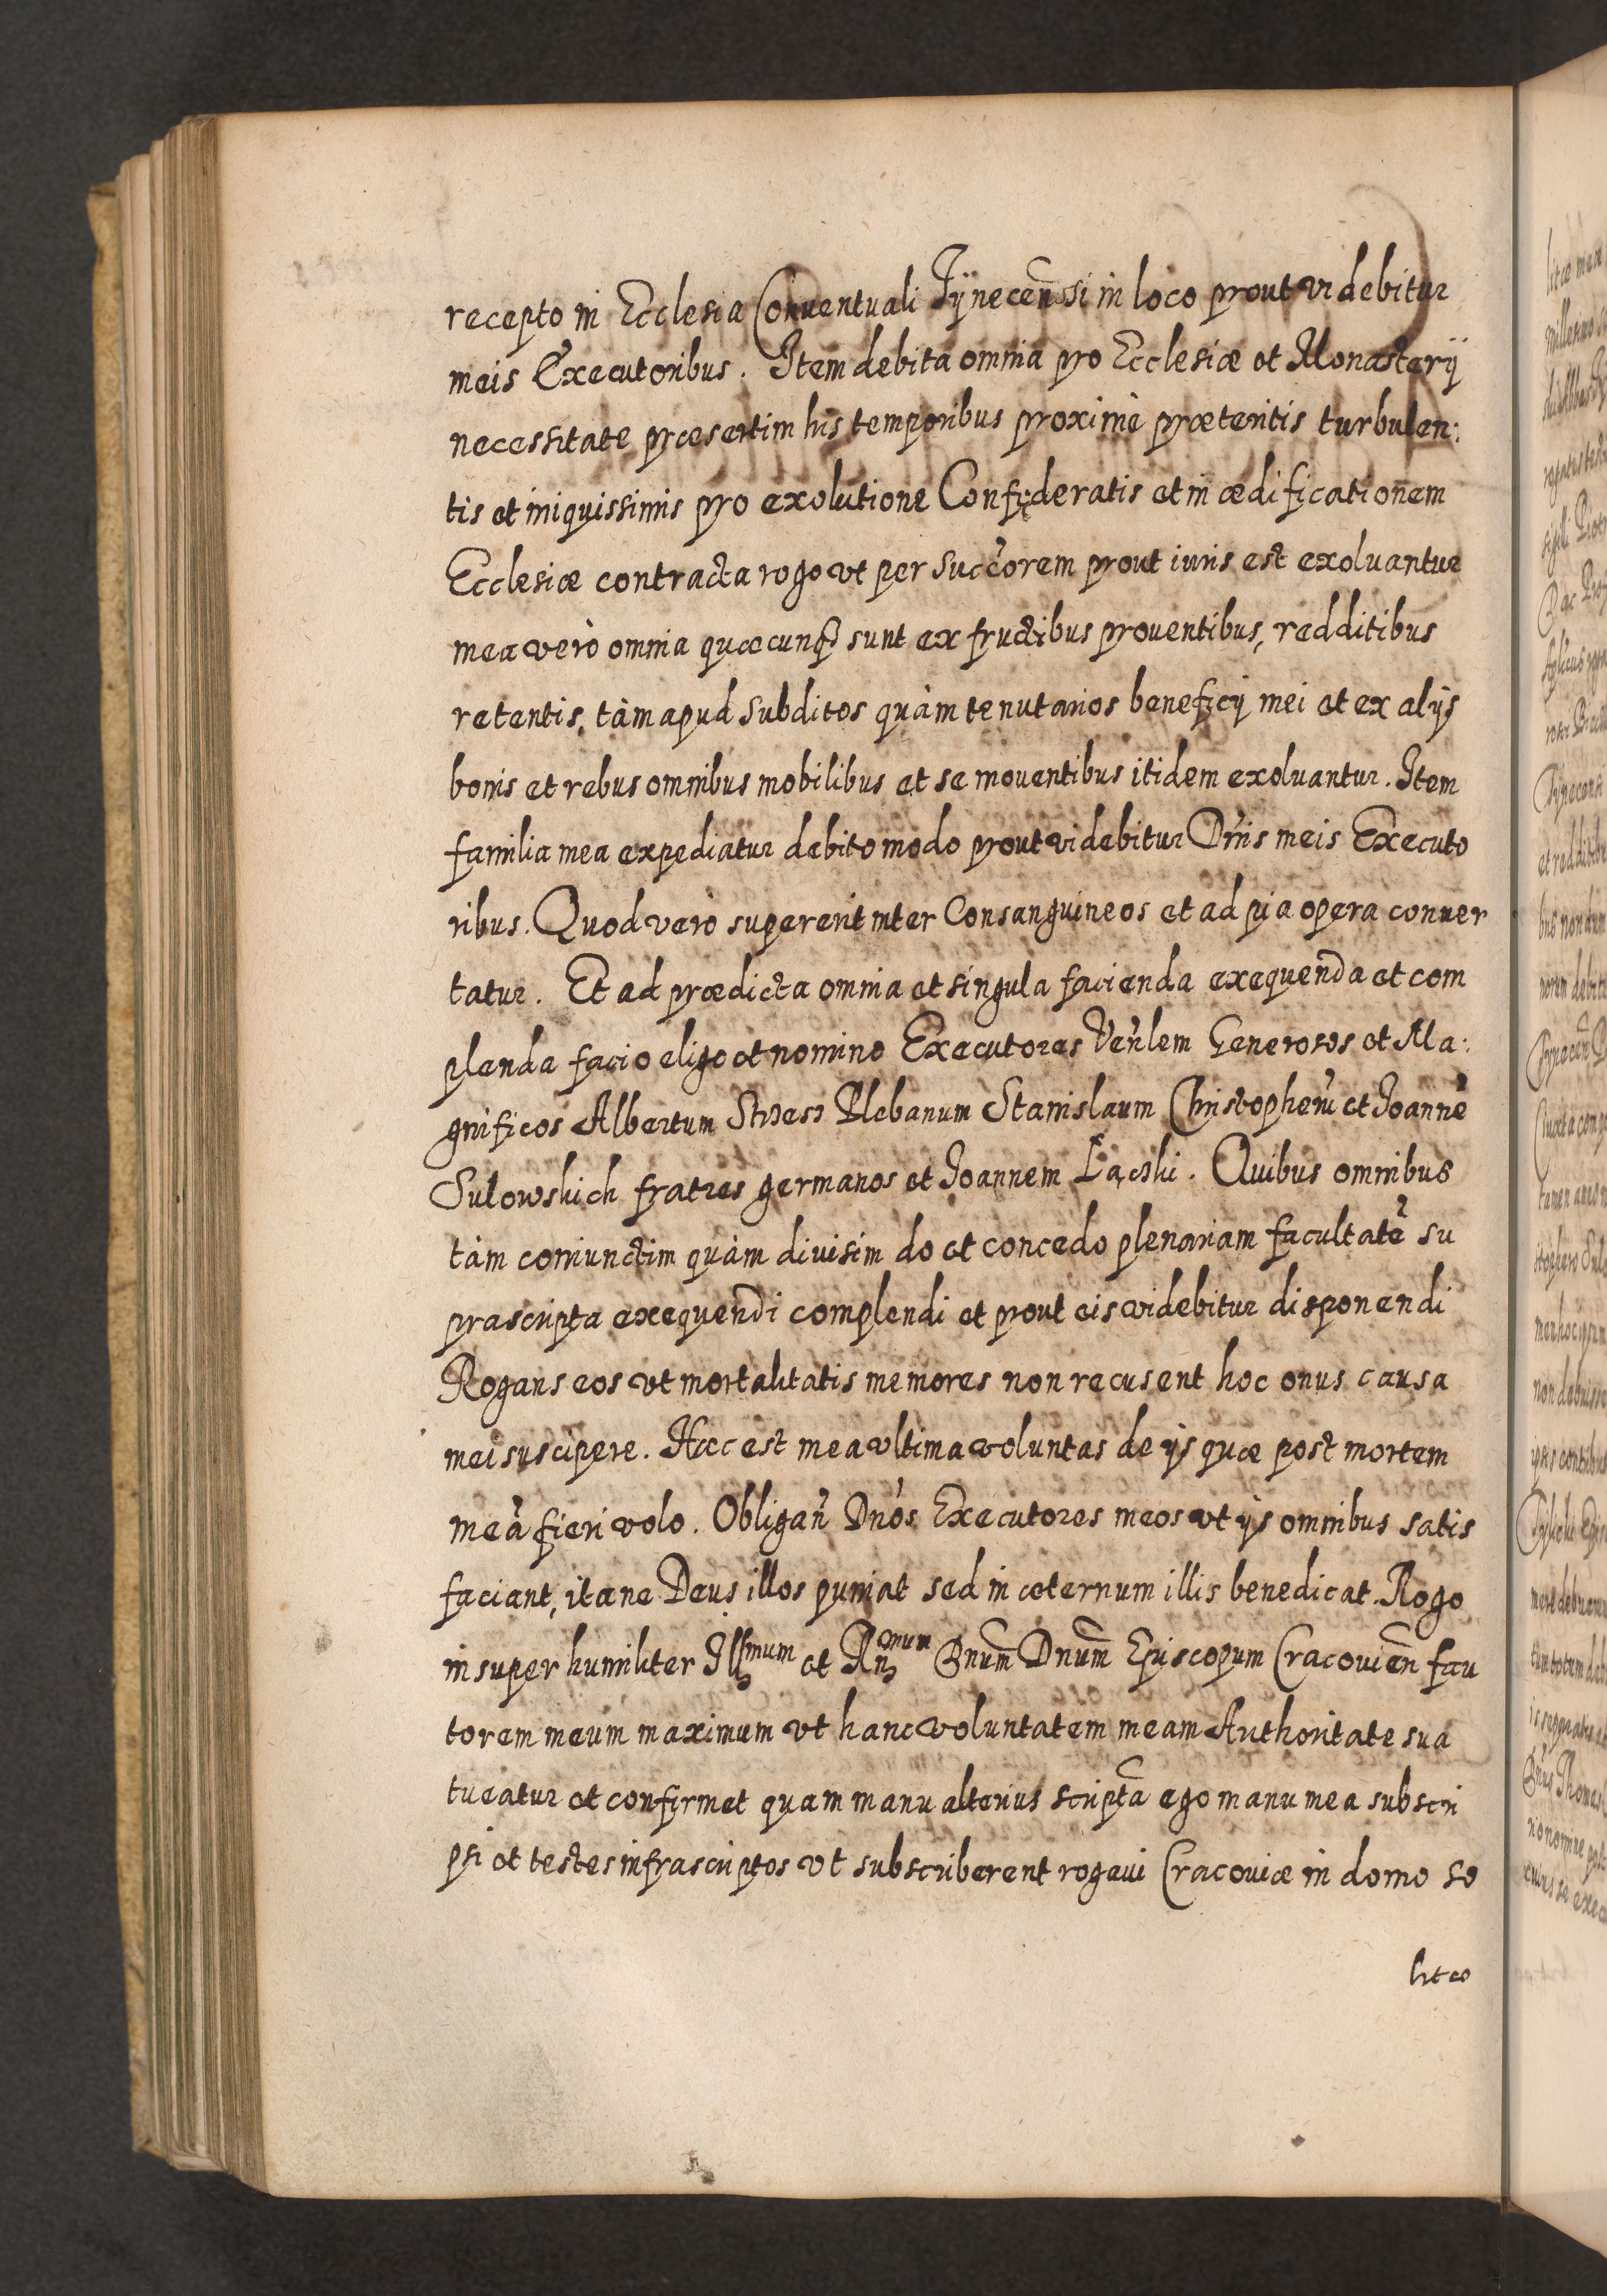 recepto in Ecclesia Conuentuali Tÿnecen̄ssi in loco prout videbitur
meis Executoribus. Item debita omnia pro Ecclesiæ et Monasterÿ
necessitate præsertim his temporibus proximè præteritis turbulen:
tis et iniquissimis pro exolutione Confęderatis et in ædificationem
Ecclesiæ contracta rogo vt per Succ̉orem prout iuris est exoluantur
mea verò omnia quæcunq3 sunt ex fructibus prouentibus, redditibus
retentis, tàm apud Subditos quàm tenutarios beneficÿ mei et ex alÿs
bonis et rebus omnibus mobilibus et se mouentibus itidem exoluantur. Item
familia mea expediatur debito modo prout videbitur Dn̄is meis Executo
ribus. Quod verò supererit inter Consanguineos et ad pia opera conuer
tatur. Et ad prædicta omnia et singula facienda exequenda et com
plenda facio eligo et nomino Executores Ven̉lem Generosos et Ma:
gnificos Albertum Plebanum Stanislaum Christopherū et Joannē
Sułowskich fratres germanos et Joannem Łącki. Quibus omnibus
tàm coniunctim quàm diuisim do et concedo plenariam facultatē su
prascripta exequendi complendi et prout eis videbitur disponendi
Rogans eos vt mortalitatis memores non recusent hoc onus causa
mei suscipere. Hæc est mea vltima voluntas de ÿs quæ post mortem
meā fieri volo. Obligan̉ Dn̉os Executores meos vt ÿs omnibus satis
faciant, ita ne Deus illos puniat sed in æternum illis benedicat. Rogo
insuper humiliter Illmum et Rnmum Dnum̄ Episcopum Cracouien̄ fau
torem meum maximum vt hanc voluntatem meam Authoritate sua
tueatur et confirmet quam manu alterius scripta ego manu mea subscri
psi et testes infrascriptos vt subscriberent rogaui Cracouiæ in domo so
litæ